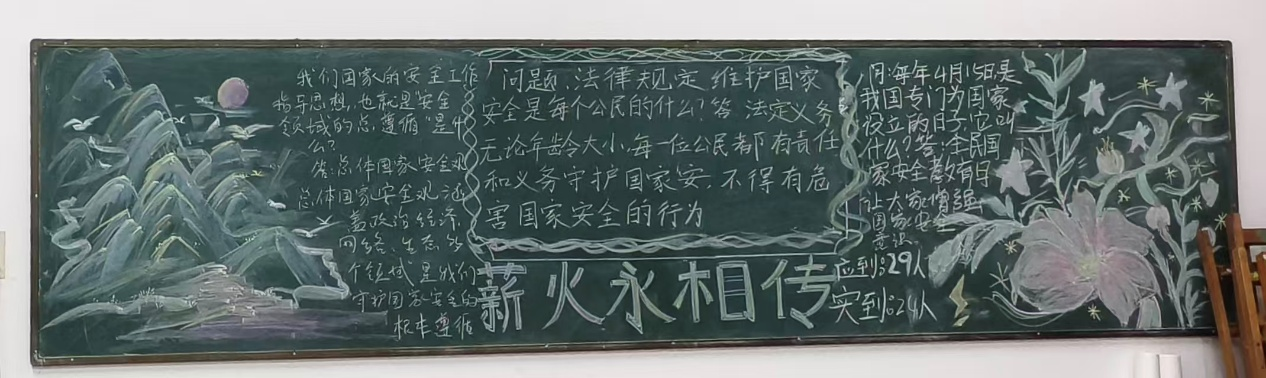 我们国家的安全工作
指导思想,也就是"安全
领域的总遵循"是什
么?
答:总体国家安全观
总体国家安全观 涵
盖政治 经济、
网络、生态 等
个领域 是我们
守护国家安全的
根本遵循
问题、法律规定 维护国家
安全是每个公民的什么?答 法定义务
无论年龄大小,每一位公民都有责任
和义务守护国家安,不得有危
害国家安全的行为
薪火永相传
问:每年4月15日,是
我国专门为国家
设立的日子,它叫
什么?答:全民国
家安全教育日
让大家增强
国家安全
意识
应到:29人
实到:24人